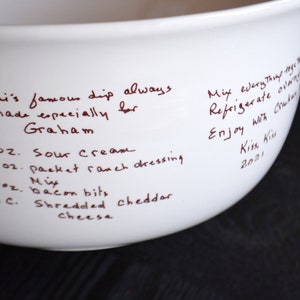 famous dip always
made especially for
Graham
oz. Sour Cream
oz. packet ranch dressing
Mix
oz. bacon bits
C. Shredded Cheddar
Cheese
Mix everything together
Refrigerate
Enjoy with
Kiss, Kiss
2021